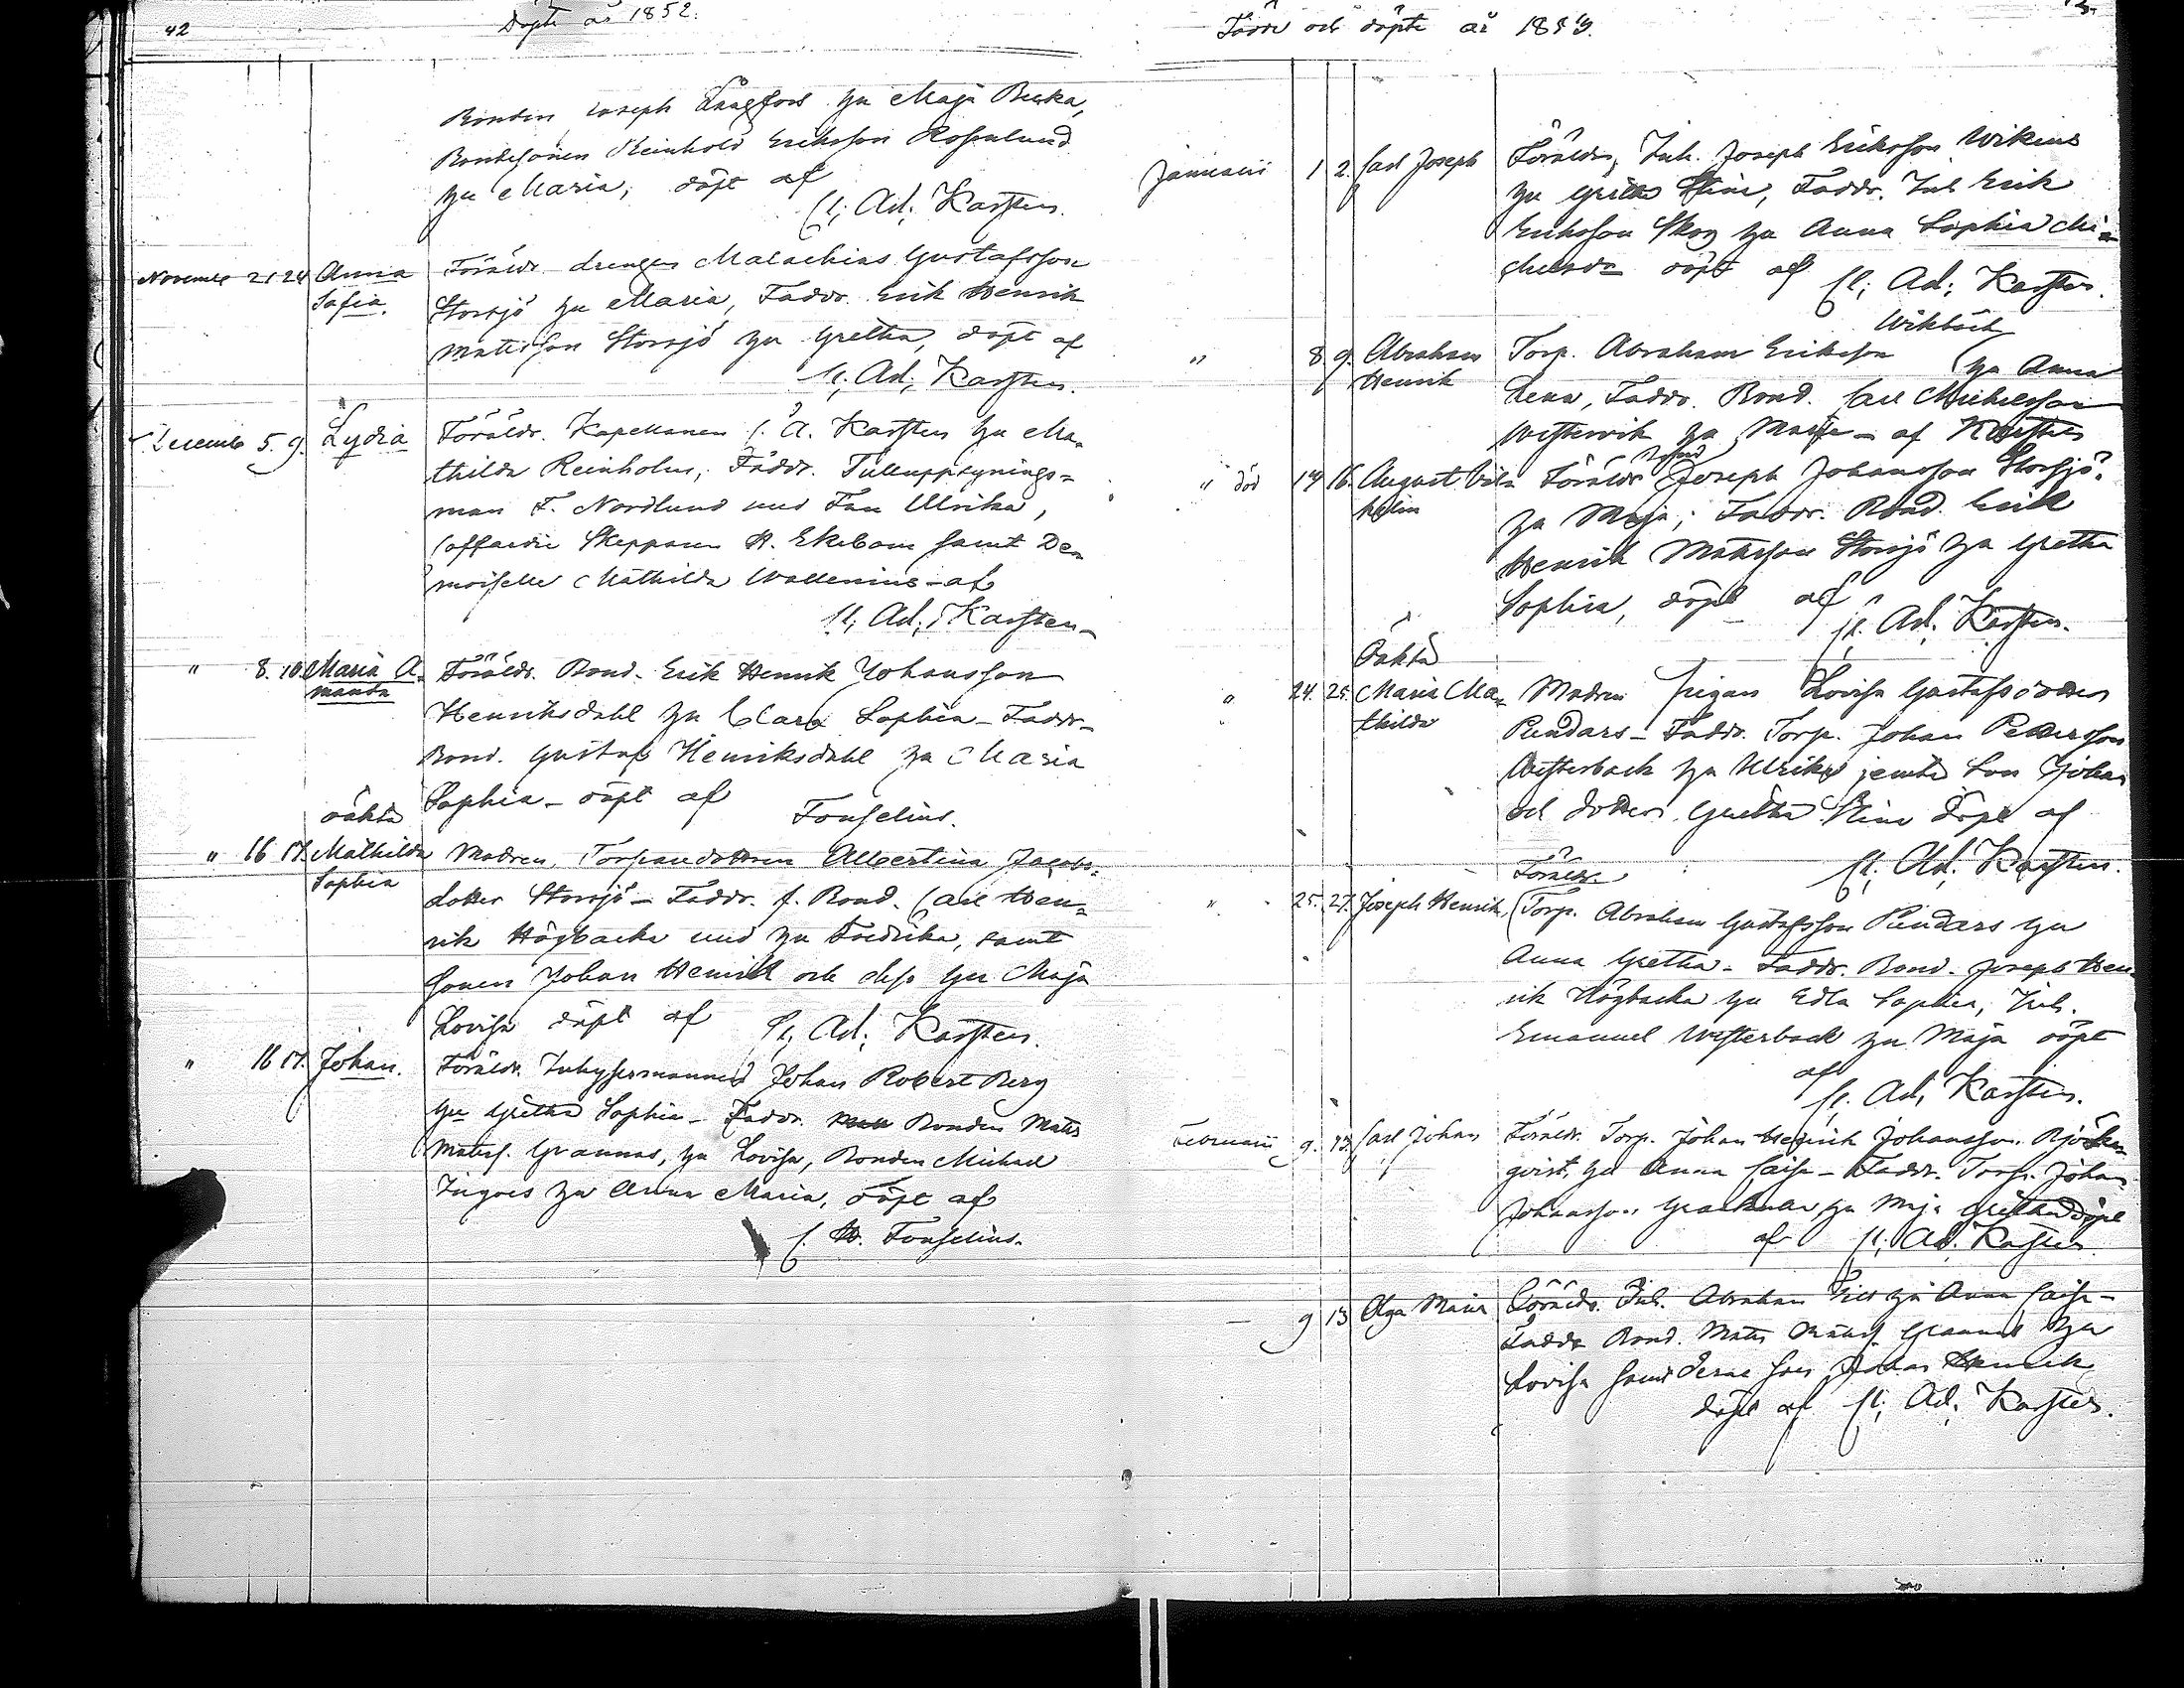 42
Döpte år 1852.
Bonden Joseph Långfors hu Maja Beata,
Bondesonen Reinhold Eriksson Rosenlund
hu Maria, döpt af
C. Ad. Karsten.
November 21 24 Anna
Sofia.
Föräldr. drengen Malachias Gustafsson
Storsjö hu Maria, Faddr. Erik Henrik
Mattsson Storsjö hu Gretha, döpt af
C. Ad. Karsten.
December 5. 9. Lydia
Föräldr. Kapellanen C. A. Karsten hu Ma-
thilda Reinholm, Faddr. Tulluppsynings-
man F. Nordlund med Fru Ulrika,
Coffardie Skepparen A. Ekebom samt De-
moiselle Mathilda Wallenius - af
C. Ad. Karsten
" 8. 10. Maria A-
manda
Föräldr. Bond. Erik Henrik Johansson
Henriksdahl hu Clara Sophia - Faddr.
Bond. Gustaf Henriksdahl hu Maria
Sophia - döpt af
Fonselius.
oäkta
" 16 17. Mathilda
Sophia
Modren, Torparedottren Albertina Jacobs-
dotter Storsjö - Faddr. f. Bond. Carl Hen-
rik Högbacka med hu Fredrika, samt
sonen Johan Henrik och dess hu Maja
Lovisa döpt af
C. Ad. Karsten.
" 16 17. Johan.
Föräldr. Inhysesmannen Johan Robert Berg
hu Gretha Sophia - Faddr. Bonden Matts
Mattss. Grannas, hu Lovisa, Bonden Michael
Ingves hu Anna Maria, döpt af
C. H. Fonselius.
Födde och döpte år 1853.
Januarii 1 2. Carl Joseph
Föräldr. Inh. Joseph Eriksson Wikens
hu Gretha Stina, Faddr. Inh Erik
Eriksson Skog hu Anna Sophia Mi-
chelsdr döpt af
C. Ad. Karsten.
" 8 9. Abraham
Henrik
Torp. Abraham Eriksson Wikbäck
hu Anna
Lena, Faddr. Bond. Carl Michelsson
Westervik hu Maria - af Karsten
" död 14 16. August Vil-
helm
Föräldr Bond Joseph Johansson Storsjö
hu Maja; Faddr. Bond. Erik
Henrik Mattsson Storsjö hu Gretha
Sophia, döpt af
C. Ad. Karsten.
Oäkta
" 24. 25. Maria Ma-
thilda
Modren pigan Lovisa Gustafsdotter
Pundars - Faddr. Torp. Johan Pettersson
Westerback hu Ulrika jemte Son Johan
och dotter Gretha Stina döpt af
C. Ad. Karsten.
Föräldr.
" 25. 27. Joseph Henrik,
Torp. Abraham Gustafsson Pundars hu
Anna Gretha - Faddr. Bond. Joseph Hen-
rik Högbacka hu Edla Sophia, Inh.
Emanuel Westerback hu Maja döpt
af
C. Ad. Karsten.
Februarii 9. 13. Carl Johan
Föräldr. Torp. Johan Henrik Johansson Björk-
qvist, hu Anna Caisa - Faddr. Torp. Johan
Johansson hu Maja Gretha döpt
af C. Ad. Karsten.
— 9 13 Olga Maria
Föräldr. Inh. Abraham hu Anna Caisa -
Faddr Bond. Matts Mattss. Grannas hu
Lovisa samt deras son Johan Henrik
döpt af C. Ad. Karsten.